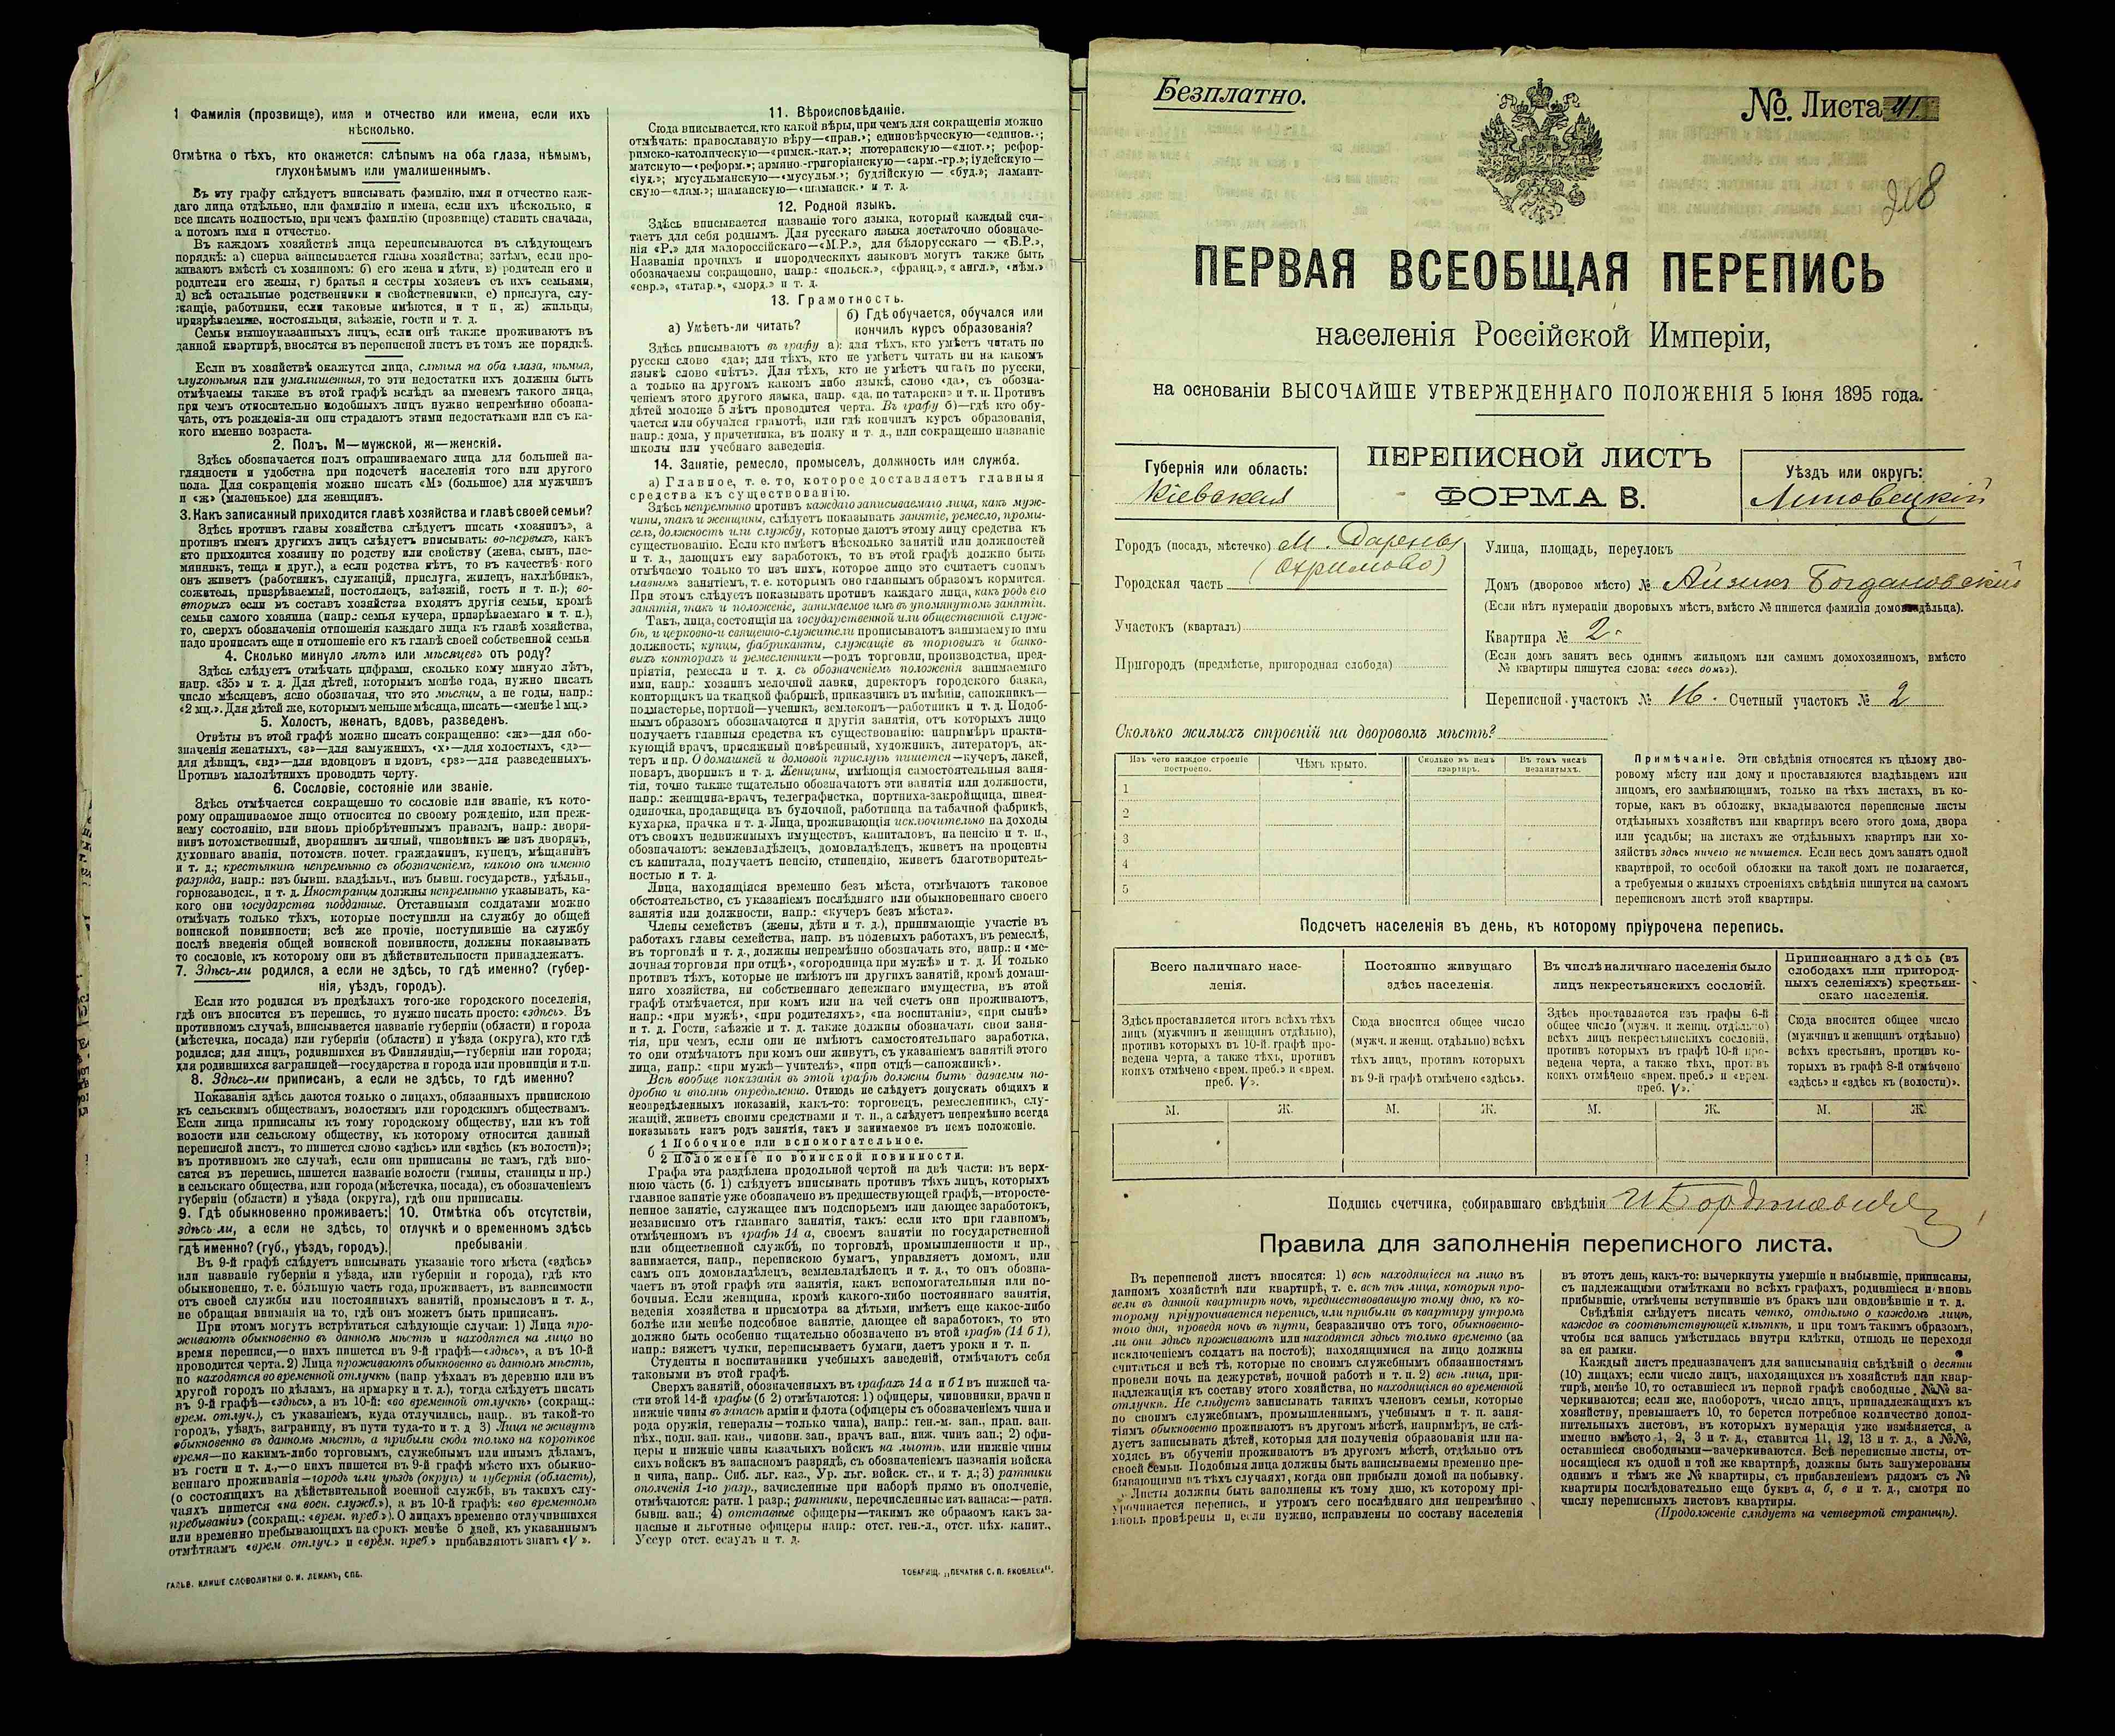 1 Фамилія (прозвище), имя и отчество или имена, если ихъ
нѣсколько.
Отмѣтка о тѣхъ, кто окажется: слѣпымъ на оба глаза, нѣмымъ,
глухонѣмымъ или умалишеннымъ.
Въ эту графу слѣдуетъ вписывать фамилію, имя и отчество каж-
даго лица отдѣльно, или фамилію и имена, если ихъ нѣсколько, и
все писать полностью, при чемъ фамилію (прозвище) ставить сначала,
а потомъ имя и отчество.
Въ каждомъ хозяйствѣ лица переписываются въ слѣдующемъ
порядкѣ: а) сперва записывается глава хозяйства; затѣмъ, если про-
живаютъ вмѣстѣ съ хозяиномъ: б) его жена и дѣти, в) родители его и
родители его жены, г) братья и сестры хозяевъ съ ихъ семьями,
д) всѣ остальные родственники и свойственники, е) прислуга, слу-
жащіе, работники, если таковые имѣются, и т п, ж) жильцы,
призрѣваемые, постояльцы, заѣзжіе, гости и т. д.
Семьи вышеуказанныхъ лицъ, если онѣ также проживаютъ въ
данной квартирѣ, вносятся въ переписной листъ въ томъ же порядкѣ.
Если въ хозяйствѣ окажутся лица, слѣпыя на оба глаза, нѣмыя,
глухонѣмыя или умалишенныя, то эти недостатки ихъ должны быть
отмѣчаемы также въ этой графѣ вслѣдъ за именемъ такого лица,
при чемъ относительно подобныхъ лицъ нужно непремѣнно обозна-
чать, отъ рожденія-ли они страдаютъ этими недостатками или съ ка-
кого именно возраста.
2. Полъ. М—мужской, ж—женскій.
Здѣсь обозначается полъ опрашиваемаго лица для большей на-
глядности и удобства при подсчетѣ населенія того или другого
пола. Для сокращенія можно писать «М» (большое) для мужчинъ
и «ж» (маленькое) для женщинъ.
3. Какъ записанный приходится главѣ хозяйства и главѣ своей семьи?
Здѣсь противъ главы хозяйства слѣдуетъ писать «хозяинъ», а
противъ именъ другихъ лицъ слѣдуетъ вписывать: во-первыхъ, какъ
кто приходится хозяину по родству или свойству (жена, сынъ, пле-
мянникъ, теща и друг.), а если родства нѣтъ, то въ качествѣ кого
онъ живетъ (работникъ, служащій, прислуга, жилецъ, нахлѣбникъ,
сожитель, призрѣваемый, постоялецъ, заѣзжій, гость и т. п.); во-
вторыхъ если въ составъ хозяйства входятъ другія семьи, кромѣ
семьи самого хозяина (напр.: семья кучера, призрѣваемаго и т. п.),
то, сверхъ обозначенія отношенія каждаго лица къ главѣ хозяйства,
надо прописать еще и отношеніе его къ главѣ своей собственной семьи
4. Сколько минуло лѣтъ или мѣсяцевъ отъ роду?
Здѣсь слѣдуетъ отмѣчать цифрами, сколько кому минуло лѣтъ,
напр. «35» и т. д. Для дѣтей, которымъ менѣе года, нужно писать
число мѣсяцевъ, ясно обозначая, что это мѣсяцы, а не годы, напр.:
«2 мц.». Для дѣтей же, которымъ меньше мѣсяца, писать—«менѣе 1 мц.»
5. Холостъ, женатъ, вдовъ, разведенъ.
Отвѣты въ этой графѣ можно писать сокращенно: «ж»—для обо-
значенія женатыхъ, «з»—для замужнихъ, «х»—для холостыхъ, «д»—
для дѣвицъ, «вд»—для вдовцовъ и вдовъ, «рз»—для разведенныхъ.
Противъ малолѣтнихъ проводить черту.
6. Сословіе, состояніе или званіе.
Здѣсь отмѣчается сокращенно то сословіе или званіе, къ кото-
рому опрашиваемое лицо относится по своему рожденію, или преж-
нему состоянію, или вновь пріобрѣтеннымъ правамъ, напр.: дворя-
нинъ потомственный, дворянинъ личный, чиновникъ не изъ дворянъ,
духовнаго званія, потомств. почет. гражданинъ, купецъ, мѣщанинъ
и т. д.; крестьянинъ непремѣнно съ обозначеніемъ, какого онъ именно
разряда, напр.: изъ бывш. владѣльч., изъ бывш. государств., удѣльн.,
горнозаводск., и т. д. Иностранцы должны непремѣнно указывать, ка-
кого они государства подданные. Отставными солдатами можно
отмѣчать только тѣхъ, которые поступили на службу до общей
воинской повинности; всѣ же прочіе, поступившіе на службу
послѣ введенія общей воинской повинности, должны показывать
то сословіе, къ которому они въ дѣйствительности принадлежатъ.
7. Здѣсь-ли родился, а если не здѣсь, то гдѣ именно? (губер-
нія, уѣздъ, городъ).
Если кто родился въ предѣлахъ того-же городского поселенія,
гдѣ онъ вносится въ перепись, то нужно писать просто: «здѣсь». Въ
противномъ случаѣ, вписывается названіе губерніи (области) и города
(мѣстечка, посада) или губерніи (области) и уѣзда (округа), кто гдѣ
родился; для лицъ, родившихся въ Финляндіи,—губернія или города;
для родившихся заграницей—государства и города или провинціи и т.п.
8. Здѣсь-ли приписанъ, а если не здѣсь, то гдѣ именно?
Показанія здѣсь даются только о лицахъ, обязанныхъ припискою
къ сельскимъ обществамъ, волостямъ или городскимъ обществамъ.
Если лица приписаны къ тому городскому обществу, или къ той
волости или сельскому обществу, къ которому относится данный
переписной листъ, то пишется слово «здѣсь» или «здѣсь (къ волости)»;
въ противномъ же случаѣ, если они приписаны не тамъ, гдѣ вно-
сятся въ перепись, пишется названіе волости (гмины, станицы и пр.)
и сельскаго общества, или города (мѣстечка, посада), съ обозначеніемъ
губерніи (области) и уѣзда (округа), гдѣ они приписаны.
9. Гдѣ обыкновенно проживаетъ:
здѣсь-ли, а если не здѣсь, то
гдѣ именно? (губ., уѣздъ, городъ).
10. Отмѣтка объ отсутствіи,
отлучкѣ и о временномъ здѣсь
пребываніи.
Въ 9-й графѣ слѣдуетъ вписывать указаніе того мѣста («здѣсь»
или названіе губерніи и уѣзда, или губерніи и города), гдѣ кто
обыкновенно, т. е. бо́льшую часть года, проживаетъ, въ зависимости
отъ своей службы или постоянныхъ занятій, промысловъ и т. д.,
не обращая вниманія на то, гдѣ онъ можетъ быть приписанъ.
При этомъ могутъ встрѣтиться слѣдующіе случаи: 1) Лица про-
живаютъ обыкновенно въ данномъ мѣстѣ и находятся на лицо во
время переписи,—о нихъ пишется въ 9-й графѣ—«здѣсь», а въ 10-й
проводится черта. 2) Лица проживаютъ обыкновенно въ данномъ мѣстѣ,
но находятся во временной отлучкѣ (напр уѣхалъ въ деревню или въ
другой городъ по дѣламъ, на ярмарку и т. д.), тогда слѣдуетъ писать
въ 9-й графѣ—«здѣсь», а въ 10-й: «во временной отлучкѣ» (сокращ.:
врем. отлуч.), съ указаніемъ, куда отлучились, напр., въ такой-то
городъ, уѣздъ, заграницу, въ пути туда-то и т. д 3) Лица не живутъ
обыкновенно въ данномъ мѣстѣ, а прибыли сюда только на короткое
время—по какимъ-либо торговымъ, служебнымъ или инымъ дѣламъ,
въ гости и т. д.,—о нихъ пишется въ 9-й графѣ мѣсто ихъ обыкно-
веннаго проживанія—городъ или уѣздъ (округъ) и губернія (область),
(о состоящихъ на дѣйствительной военной службѣ, въ такихъ слу-
чаяхъ пишется «на воен. служб.»), а въ 10-й графѣ: «во временномъ
пребываніи» (сокращ.: «врем. преб.»). О лицахъ временно отлучившихся
или временно пребывающихъ на срокъ менѣе 5 дней, къ указаннымъ
отмѣткамъ «врем. отлуч.» и «врем. преб.» прибавляютъ знакъ «V ».
ГАЛЬВ. КЛИШЕ СЛОВОЛИТНИ О. И. ЛЕМАНЪ, СПБ.
11. Вѣроисповѣданіе.
Сюда вписывается, кто какой вѣры, при чемъ для сокращенія можно
отмѣчать: православную вѣру—«прав.»; единовѣрческую—«единов.»;
римско-католическую—«римск.-кат.»; лютеранскую—«лют.»; рефор-
матскую—«реформ.»; армяно-григоріанскую—«арм.-гр.»; іудейскую—
«іуд.»; мусульманскую—«мусульм.»; буддійскую — «буд.»; ламаит-
скую—«лам.»; шаманскую—«шаманск.» и т. д.
12. Родной языкъ.
Здѣсь вписывается названіе того языка, который каждый счи-
таетъ для себя роднымъ. Для русскаго языка достаточно обозначе-
нія «Р.» для малороссійскаго—«М.Р.», для бѣлорусскаго — «Б.Р.»,
Названія прочихъ и инородческихъ языковъ могутъ также быть
обозначаемы сокращенно, напр.: «польск.», «франц.», « англ.», «нѣм.»
«евр.», «татар.», «морд.» и т. д.
13. Грамотность.
а) Умѣетъ-ли читать?
б) Гдѣ обучается, обучался или
кончилъ курсъ образованія?
Здѣсь вписываютъ въ графу а): для тѣхъ, кто умѣетъ читать по
русски слово «да»; для тѣхъ, кто не умѣетъ читать ни на какомъ
языкѣ слово «нѣтъ». Для тѣхъ, кто не умѣетъ читать по русски,
а только на другомъ какомъ либо языкѣ, слово «да», съ обозна-
ченіемъ этого другого языка, напр. «да, по татарски» и т. п. Противъ
дѣтей моложе 5 лѣтъ проводится черта. Въ графу б)—гдѣ кто обу-
чается или обучался грамотѣ, или гдѣ кончилъ курсъ образованія,
напр.: дома, у причетника, въ полку и т. д., или сокращенно названіе
школы или учебнаго заведенія.
14. Занятіе, ремесло, промыселъ, должность или служба.
а) Главное, т. е. то, которое доставляетъ главныя
средства къ существованію.
Здѣсь непремѣнно противъ каждаго записываемаго лица, какъ муж-
чины, такъ и женщины, слѣдуетъ показывать занятіе, ремесло, промы-
селъ, должность или службу, которые даютъ этому лицу средства къ
существованію. Если кто имѣетъ нѣсколько занятій или должностей
и т. д., дающихъ ему заработокъ, то въ этой графѣ должно быть
отмѣчаемо только то изъ нихъ, которое лицо это считаетъ своимъ
главнымъ занятіемъ, т. е. которымъ оно главнымъ образомъ кормится.
При этомъ слѣдуетъ показывать противъ каждаго лица, какъ родъ его
занятія, такъ и положеніе, занимаемое имъ въ упомянутомъ занятіи.
Такъ, лица, состоящія на государственной или общественной служ-
бѣ, и церковно-и священно-служители прописываютъ занимаемую ими
должность; купцы, фабриканты, служащіе въ торговыхъ и банко-
выхъ конторахъ и ремесленники—родъ торговли, производства, пред-
пріятія, ремесла и т. д. съ обозначеніемъ положенія занимаемаго
ими, напр.: хозяинъ мелочной лавки, директоръ городского банка,
конторщикъ на ткацкой фабрикѣ, приказчикъ въ имѣніи, сапожникъ—
подмастерье, портной—ученикъ, землекопъ—работникъ и т. д. Подоб-
нымъ образомъ обозначаются и другія занятія, отъ которыхъ лицо
получаетъ главныя средства къ существованію: напримѣръ практи-
кующій врачъ, присяжный повѣренный, художникъ, литераторъ, ак-
теръ и пр. О домашней и домовой прислугѣ пишется—кучеръ, лакей,
поваръ, дворникъ и т. д. Женщины, имѣющія самостоятельныя заня-
тія, точно также тщательно обозначаютъ эти занятія или должности,
напр.: женщина-врачъ, телеграфистка, портниха-закройщица, швея-
одиночка, продавщица въ булочной, работница на табачной фабрикѣ,
кухарка, прачка и т. д. Лица, проживающія исключительно на доходы
отъ своихъ недвижимыхъ имуществъ, капиталовъ, на пенсію и т. п.,
обозначаютъ: землевладѣлецъ, домовладѣлецъ, живетъ на проценты
съ капитала, получаетъ пенсію, стипендію, живетъ благотворитель-
ностью и т. д.
Лица, находящіяся временно безъ мѣста, отмѣчаютъ таковое
обстоятельство, съ указаніемъ послѣдняго или обыкновеннаго своего
занятія или должности, напр.: «кучеръ безъ мѣста».
Члены семействъ (жены, дѣти и т. д.), принимающіе участіе въ
работахъ главы семейства, напр. въ полевыхъ работахъ, въ ремеслѣ,
въ торговлѣ и т. д., должны непремѣнно обозначать это, напр.: и «ме-
лочная торговля при отцѣ», «огородница при мужѣ» и т. д. И только
противъ тѣхъ, которые не имѣютъ ни другихъ занятій, кромѣ домаш-
няго хозяйства, ни собственнаго денежнаго имущества, въ этой
графѣ отмѣчается, при комъ или на чей счетъ они проживаютъ,
напр.: «при мужѣ», «при родителяхъ», «на воспитаніи», «при сынѣ»
и т. д. Гости, заѣзжіе и т. д. также должны обозначать свои заня-
тія, при чемъ, если они не имѣютъ самостоятельнаго заработка,
то они отмѣчаютъ при комъ они живутъ, съ указаніемъ занятій этого
лица, напр.: «при мужѣ—учителѣ», «при отцѣ—сапожникѣ».
Всѣ вообще показанія въ этой графѣ должны быть даваемы по-
дробно и вполнѣ опредѣленно. Отнюдь не слѣдуетъ допускать общихъ и
неопредѣленныхъ показаній, какъ-то: торговецъ, ремесленникъ, слу-
жащій, живетъ своими средствами и т. п., а слѣдуетъ непремѣнно всегда
показывать какъ родъ занятія, такъ и занимаемое въ немъ положеніе.
б
1 Побочное или вспомогательное.
2 Положеніе по воинской повинности.
Графа эта раздѣлена продольной чертой на двѣ части: въ верх-
нюю часть (б. 1) слѣдуетъ вписывать противъ тѣхъ лицъ, которыхъ
главное занятіе уже обозначено въ предшествующей графѣ,—второсте-
пенное занятіе, служащее имъ подспорьемъ или дающее заработокъ,
независимо отъ главнаго занятія, такъ: если кто при главномъ,
отмѣченномъ въ графѣ 14 а, своемъ занятіи по государственной
или общественной службѣ, по торговлѣ, промышленности и пр.,
занимается, напр., перепискою бумагъ, управляетъ домомъ, или
самъ онъ домовладѣлецъ, землевладѣлецъ и т. д., то онъ обозна-
чаетъ въ этой графѣ эти занятія, какъ вспомогательныя или по-
бочныя. Если женщина, кромѣ какого-либо постояннаго занятія,
веденія хозяйства и присмотра за дѣтьми, имѣетъ еще какое-либо
болѣе или менѣе подсобное занятіе, дающее ей заработокъ, то это
должно быть особенно тщательно обозначено въ этой графѣ (14 б 1),
напр.: вяжетъ чулки, переписываетъ бумаги, даетъ уроки и т. п.
Студенты и воспитанники учебныхъ заведеній, отмѣчаютъ себя
таковыми въ этой графѣ.
Сверхъ занятій, обозначенныхъ въ графахъ 14 а и б 1 въ нижней ча-
сти этой 14-й графы (б 2) отмѣчаются: 1) офицеры, чиновники, врачи и
нижніе чины въ запасѣ арміи и флота (офицеры съ обозначеніемъ чина и
рода оружія, генералы—только чина), напр.: ген.-м. зап., прап. зап.
пѣх., подп. зап. кав., чиновн. зап., врачъ зап., ниж. чинъ зап.; 2) офи-
церы и нижніе чины казачьихъ войскъ на льготѣ, или нижніе чины
сихъ войскъ въ запасномъ разрядѣ, съ обозначеніемъ названія войска
и чина, напр., Сиб. льг. каз., Ур. льг. войск. ст., и т. д.; 3) ратники
ополченія 1-го разр., зачисленные при наборѣ прямо въ ополченіе,
отмѣчаются: ратн. 1 разр.; ратники, перечисленные изъ запаса:—ратн.
бывш. зап.; 4) отставные офицеры—такимъ же образомъ какъ за-
пасные и льготные офицеры напр.: отст. ген.-л., отст. пѣх. капит.,
Уссур отст. есаулъ и т. д.
ТОВАРИЩ. „ПЕЧАТНЯ С. П. ЯКОВЛЕВА“.
Безплатно.
№. Листа 41
208
ПЕРВАЯ ВСЕОБЩАЯ ПЕРЕПИСЬ
населенія Россійской Имперіи,
на основаніи ВЫСОЧАЙШЕ УТВЕРЖДЕННАГО ПОЛОЖЕНІЯ 5 Іюня 1895 года.
Губернія или область:
Кіевская
ПЕРЕПИСНОЙ ЛИСТЪ
ФОРМА В.
Уѣздъ или округъ:
Липовецкій
Городъ (посадъ, мѣстечко) М.
Городская часть
Участокъ (кварталъ)
Пригородъ (предмѣстье, пригородная слобода)
Улица, площадь, переулокъ
Домъ (дворовое мѣсто) № Айзикъ Богдановскій
(Если нѣтъ нумераціи дворовыхъ мѣстъ, вмѣсто № пишется фамилія домовладѣльца).
Квартира № 2.
(Если домъ занятъ весь однимъ жильцомъ или самимъ домохозяиномъ, вмѣсто
№ квартиры пишутся слова: «весь домъ»).
Переписной участокъ № 16. Счетный участокъ № 2
Сколько жилыхъ строеній на дворовомъ мѣстѣ?
Изъ чего каждое строеніе построено.
Чѣмъ крыто.
Сколько въ немъ квартиръ.
Въ томъ числѣ незанятыхъ.
1
2
3
4
5
Примѣчаніе. Эти свѣдѣнія относятся къ цѣлому дво-
ровому мѣсту или дому и проставляются владѣльцемъ или
лицомъ, его замѣняющимъ, только на тѣхъ листахъ, въ ко-
торые, какъ въ обложку, вкладываются переписные листы
отдѣльныхъ хозяйствъ или квартиръ всего этого дома, двора
или усадьбы; на листахъ же отдѣльныхъ квартиръ или хо-
зяйствъ здѣсь ничего не пишется. Если весь домъ занятъ одной
квартирой, то особой обложки на такой домъ не полагается,
а требуемыя о жилыхъ строеніяхъ свѣдѣнія пишутся на самомъ
переписномъ листѣ этой квартиры.
Подсчетъ населенія въ день, къ которому пріурочена перепись.
Всего наличнаго насе-
ленія.
Постоянно живущаго
здѣсь населенія.
Въ числѣ наличнаго населенія было
лицъ некрестьянскихъ сословій.
Приписаннаго здѣсь (въ
слободахъ или пригород-
ныхъ селеніяхъ) крестьян-
скаго населенія.
Здѣсь проставляется итогъ всѣхъ тѣхъ
лицъ (мужчинъ и женщинъ отдѣльно),
противъ которыхъ въ 10-й. графѣ про-
ведена черта, а также тѣхъ, противъ
коихъ отмѣчено «врем. преб.» и «врем.
преб. V».
Сюда вносится общее число
(мужч. и женщ. отдѣльно) всѣхъ
тѣхъ лицъ, противъ которыхъ
въ 9-й графѣ отмѣчено «здѣсь».
Здѣсь проставляется изъ графы 6-й
общее число (мужч. и женщ. отдѣльно)
всѣхъ лицъ некрестьянскихъ сословій,
противъ которыхъ въ графѣ 10-й про-
ведена черта, а также тѣхъ, противъ
коихъ отмѣчено «врем. преб.» и «врем.
преб. V».
Сюда вносится общее число
(мужчинъ и женщинъ отдѣльно)
всѣхъ крестьянъ, противъ ко-
торыхъ въ графѣ 8-й отмѣчено
«здѣсь» и «здѣсь къ (волости)».
М. Ж. М. Ж. М. Ж. М. Ж.
Подпись счетчика, собиравшаго свѣдѣнія
Правила для заполненія переписного листа.
Въ переписной листъ вносятся: 1) всѣ находящіеся на лицо въ
данномъ хозяйствѣ или квартирѣ, т. е. всѣ тѣ лица, которыя про-
вели въ данной квартирѣ ночь, предшествовавшую тому дню, къ ко-
торому пріурочивается перепись, или прибыли въ квартиру утромъ
того дня, проведя ночь въ пути, безразлично отъ того, обыкновенно-
ли они здѣсь проживаютъ или находятся здѣсь только временно (за
исключеніемъ солдатъ на постоѣ); находящимися на лицо должны
считаться и всѣ тѣ, которые по своимъ служебнымъ обязанностямъ
провели ночь на дежурствѣ, ночной работѣ и т. п. 2) всѣ лица, при-
надлежащія къ составу этого хозяйства, но находящіяся во временной
отлучкѣ. Не слѣдуетъ записывать такихъ членовъ семьи, которые
по своимъ служебнымъ, промышленнымъ, учебнымъ и т. п. заня-
тіямъ обыкновенно проживаютъ въ другомъ мѣстѣ, напримѣръ, не слѣ-
дуетъ записывать дѣтей, которыя для полученія образованія или на-
ходясь въ обученіи проживаютъ въ другомъ мѣстѣ, отдѣльно отъ
своей семьи. Подобныя лица должны быть записываемы временно пре-
бывающими въ тѣхъ случаяхъ, когда они прибыли домой на побывку.
Листы должны быть заполнены къ тому дню, къ которому прі-
урочивается перепись, и утромъ сего послѣдняго дня непремѣнно
вновь провѣрены и, если нужно, исправлены по составу населенія
въ этотъ день, какъ-то: вычеркнуты умершіе и выбывшіе, приписаны,
съ надлежащими отмѣтками во всѣхъ графахъ, родившіеся и вновь
прибывшіе, отмѣчены вступившіе въ бракъ или овдовѣвшіе и т. д.
Свѣдѣнія слѣдуетъ писать четко, отдѣльно о каждомъ лицѣ,
каждое въ соотвѣтствующей клѣткѣ, и при томъ такимъ образомъ,
чтобы вся запись умѣстилась внутри клѣтки, отнюдь не переходя
за ея рамки.
Каждый листъ предназначенъ для записыванія свѣдѣній о десяти
(10) лицахъ; если число лицъ, находящихся въ хозяйствѣ или квар-
тирѣ, менѣе 10, то оставшіеся въ первой графѣ свободные №№ за-
черкиваются; если же, наоборотъ, число лицъ, принадлежащихъ къ
хозяйству, превышаетъ 10, то берется потребное количество допол-
нительныхъ листовъ, въ которыхъ нумерація уже измѣняется, а
именно вмѣсто 1, 2, 3 и т. д., ставится 11, 12, 13 и т. д., а №№,
оставшіеся свободными—зачеркиваются. Всѣ переписные листы, от-
носящіеся къ одной и той же квартирѣ, должны быть занумерованы
однимъ и тѣмъ же № квартиры, съ прибавленіемъ рядомъ съ №
квартиры послѣдовательно еще буквъ а, б, в и т. д., смотря по
числу переписныхъ листовъ квартиры.
(Продолженіе слѣдуетъ на четвертой страницѣ).